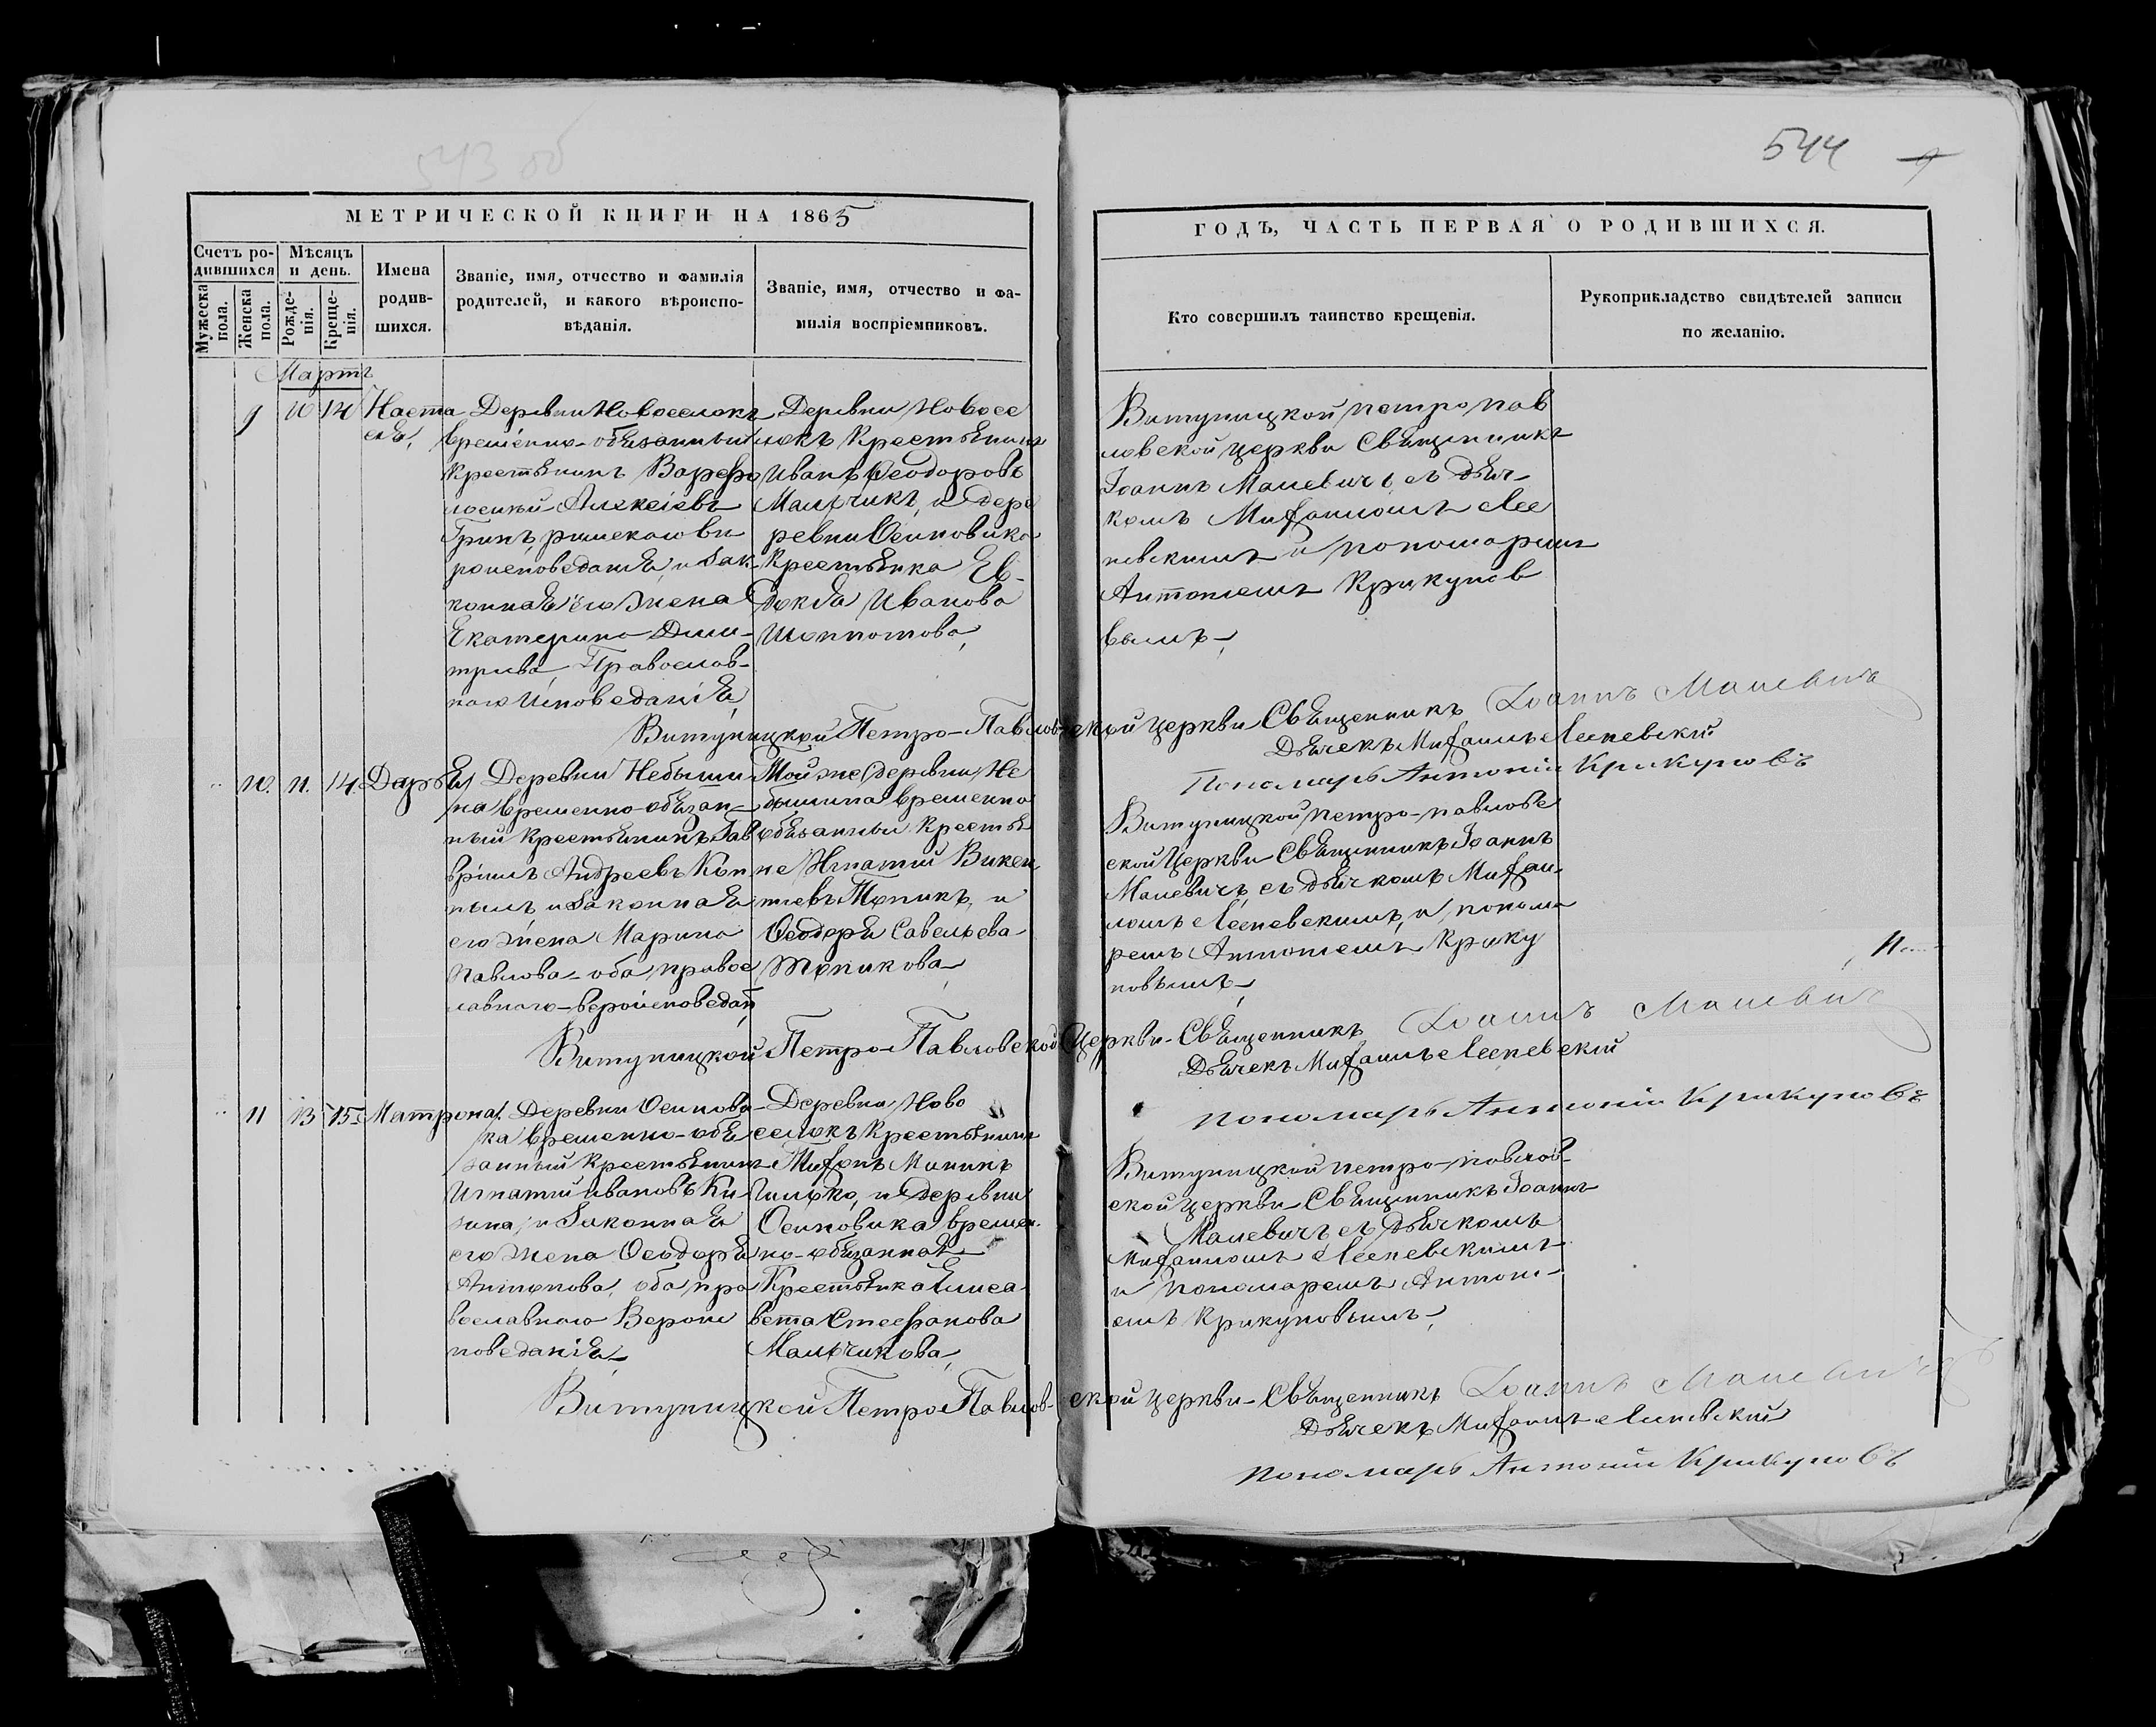 543 об
544
МЕТРИЧЕСКОЙ КНИГИ НА 1865
ГОДЪ, ЧАСТЬ ПЕРВАЯ О РОДИВШИХСЯ.
Счетъ ро-
дившихся
Мужеска
пола.
Женска
пола.
Мѣсяцъ
и день.
Рожде-
нія.
Креще-
нія.
Имена
родив-
шихся.
Званіе, имя, отчество и фамилія
родителей, и какого вѣроиспо-
вѣданія.
Званіе, имя, отчество и фа-
милія воспріемниковъ.
Кто совершилъ таинство крещенія.
Рукоприкладство свидѣтелей записи
по желанію.
Мартъ
9 10 14
Наста
сія,
Деревни Новоселокъ
временно-обязанный
Крестьянинъ Варфо
ломей Алексіевъ
Гринъ римскаго ве
роисповеданія, и зак
конная его жена
Екатерина Дими-
тріева, Православ-
наго Исповеданія,
Деревни Новосе
локъ Крестьянинъ
Иванъ Ѳеодоровъ
Мальчикъ, и дере
ревни Осиновика
Крестьянка Ев-
докія Иванова
Шоппотова,
Витуницкой петро пав
ловской церкви Священникъ
Іоаннъ Малевичъ съ дьяч-
комъ Михаиломъ Лес
невскимъ и пономаремъ
Антоніемъ Крикунов
вымъ,
Витуницкой Петро-Павловской церкви Священникъ Іоаннъ Малевичъ
Дьячекъ Михаилъ Лесневскій
Пономарь Антоній Крикуновъ
10. 11. 14.
Дарья
Деревни Небыши
на временно-обязан-
ный Крестьянинъ Гав
вріилъ Андреевъ
и законная
его жена Марина
Павлова оба правос
лавного вероисповедан
Той же деревни Не
бышина временно
обязанные Крестья
не Игнатій Викен
тіевъ Тупикъ, и
Ѳеодора Савельева
Тупикова,
Витуницкой петро-павловс
ской Церкви Священникъ Іоаннъ
Малевичъ съ дьячкомъ Михаи
ломъ Лесневскимъ, и понома
ремъ Антоніемъ Крику
новымъ,
Витуницкой Петро-Павловской Церкви Священникъ Іоаннъ Малевичъ
Дьячекъ Михаилъ Лесневскій
Пономарь Антоній Крикуновъ
11 13 15
Матрона,
Деревни Осинови
ка временно-обя
занный Крестьянинъ
Игнатій Ивановъ Ки
зина, и законная
его жена Ѳеодора
Антонова, оба пра
вославного Вероис
поведанія,
Деревни Ново
селокъ Крестьянинъ
Деревни
Осиновика времен
но-обязанная
Крестьянка Елиса
вета Стефанова
Мальчикова,
Витуницкой петро-павлов-
ской церкви Священникъ Іоаннъ
Малевичъ съ дьячкомъ
Михаиломъ Лесневскимъ
и пономаремъ Антоні-
емъ Крикуновымъ,
Витуницкой Петро Павлов-ской церкви Священникъ Іоаннъ Малевичъ
Дьячекъ Михаилъ Лисневскій
Пономарь Антоній Крикуновъ